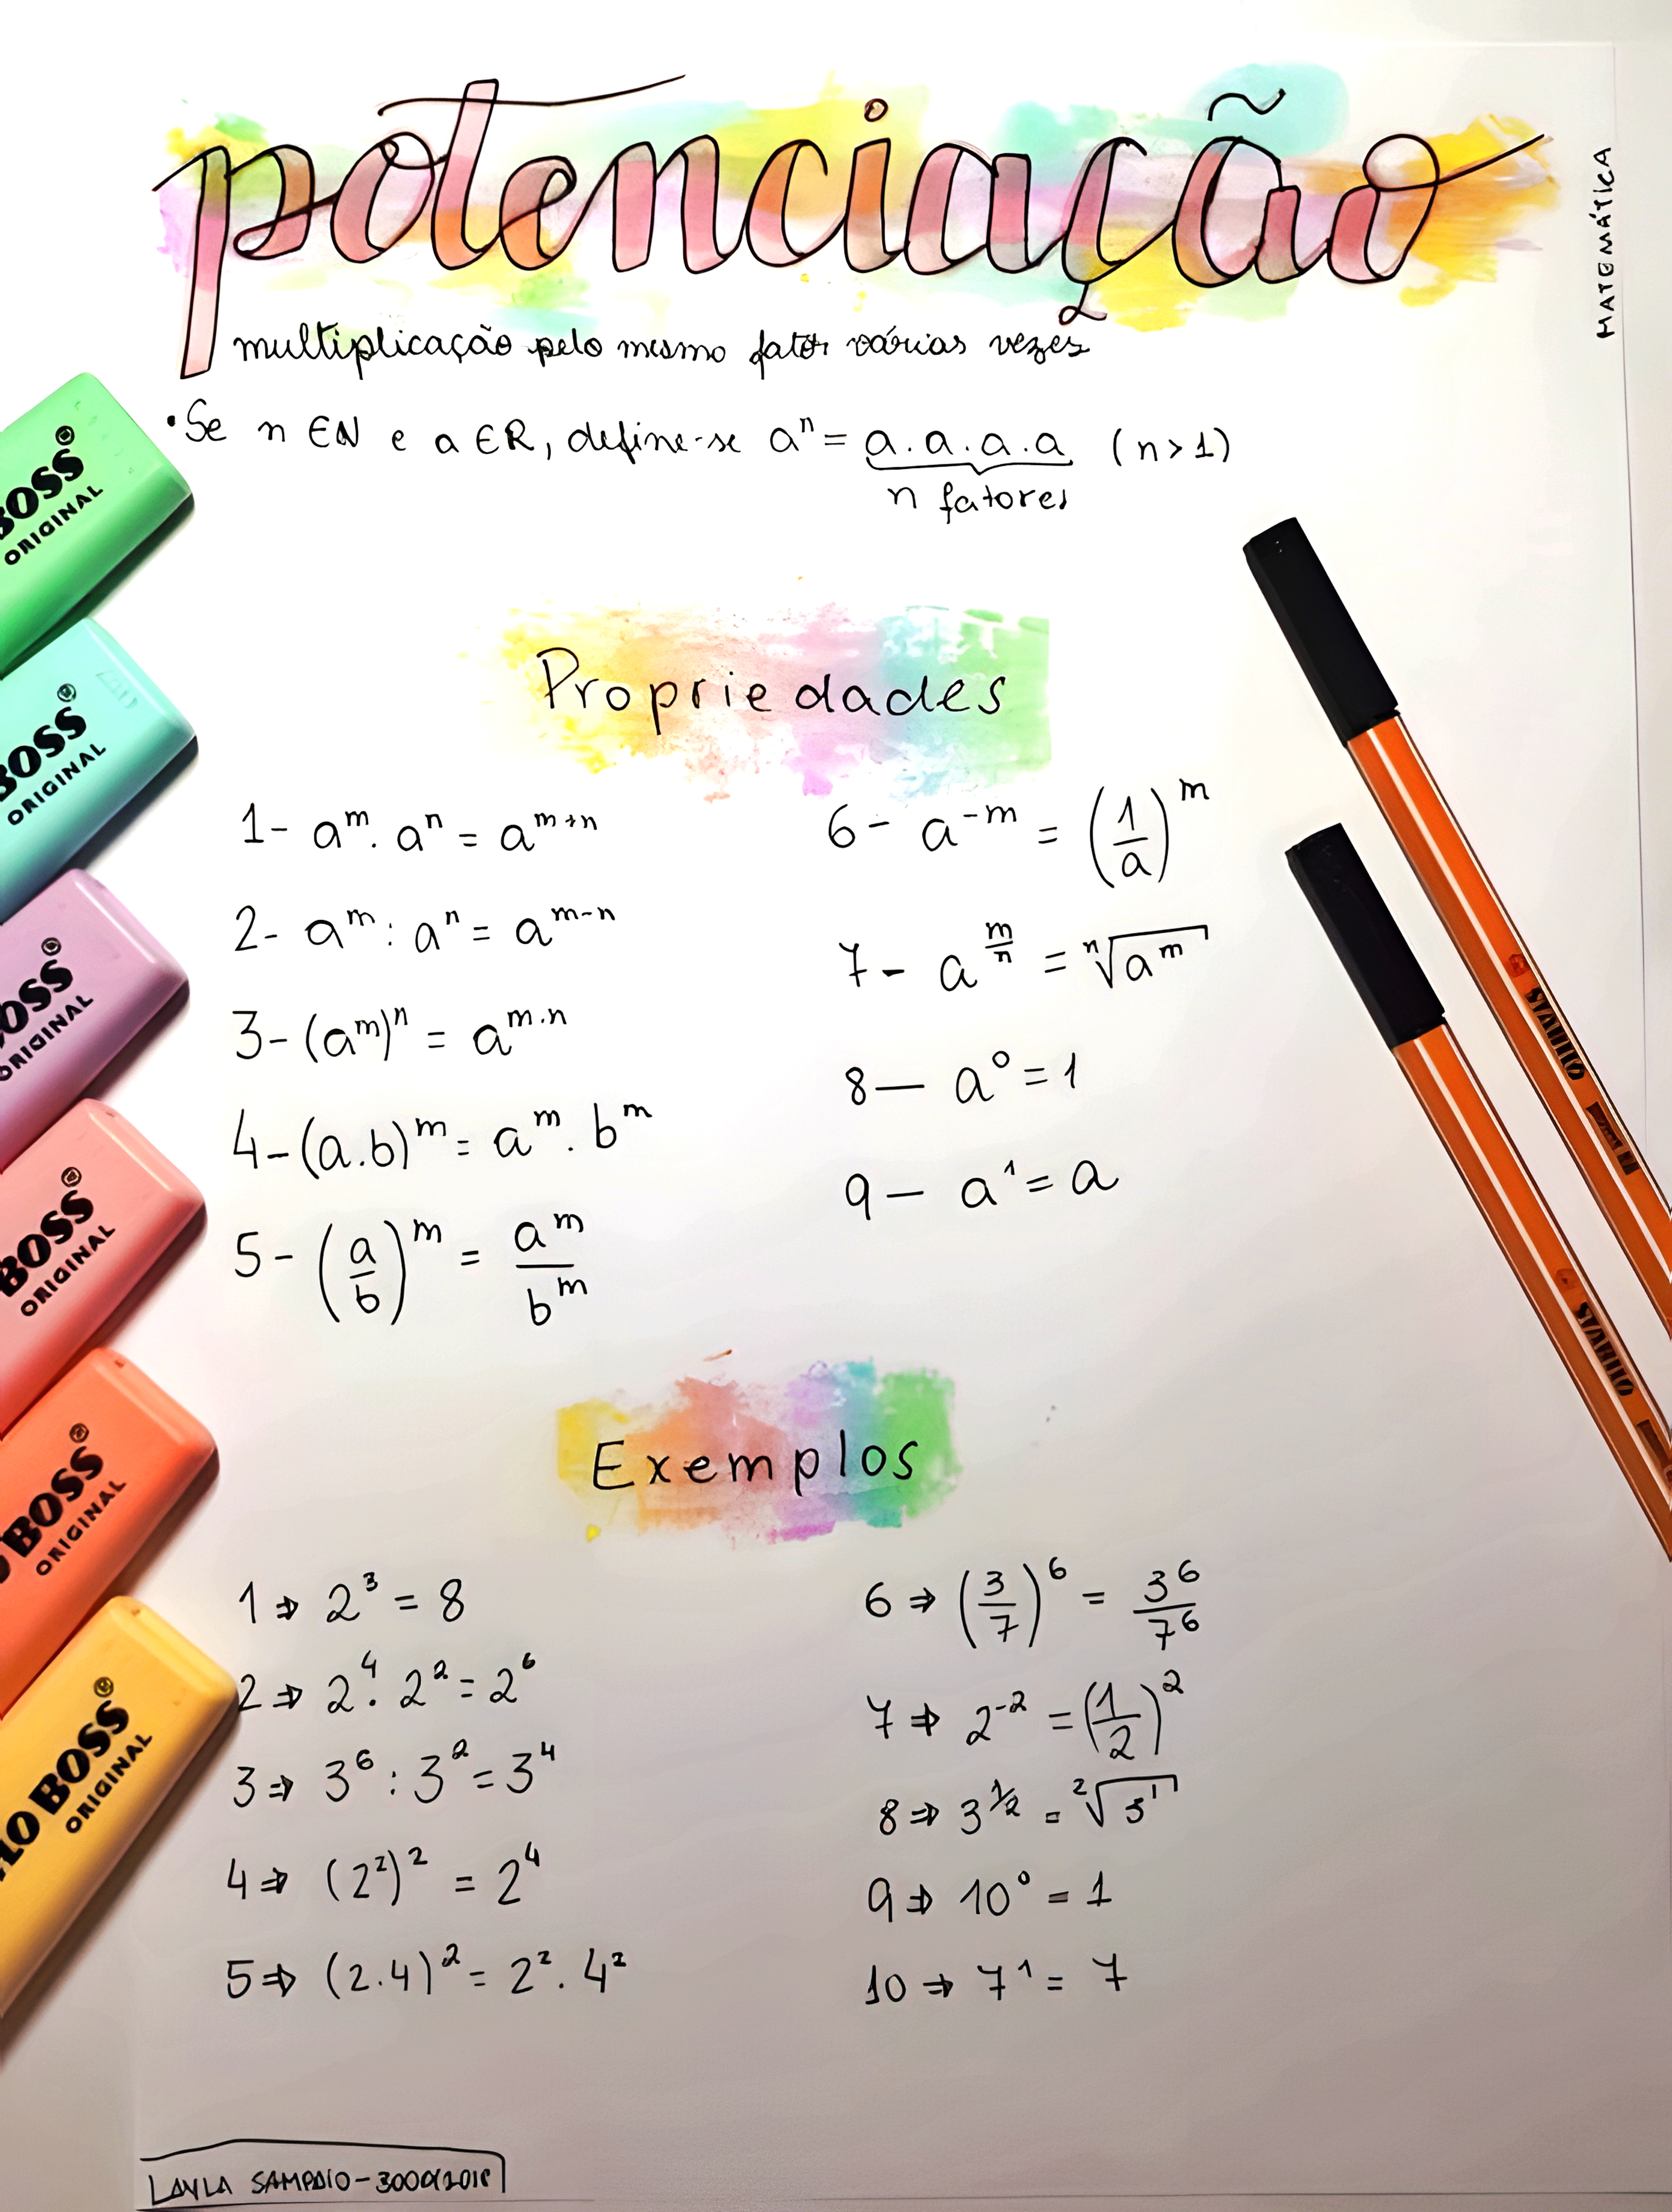 potenciação
MATEMÁTICA
multiplicação pelo mesmo fator várias vezes
• Se n ∈ N e a ∈ R, define-se aⁿ = a . a . a . a (n > 1)
n fatores
Propriedades
1- aᵐ . aⁿ = aᵐ⁺ⁿ
2- aᵐ : aⁿ = aᵐ⁻ⁿ
3- (aᵐ)ⁿ = a^(m.n)
4- (a.b)ᵐ = aᵐ . bᵐ
5- (a/b)ᵐ = aᵐ/bᵐ
6- a⁻ᵐ = (1/a)ᵐ
7- a^(m/n) = ⁿ√aᵐ
8- a⁰ = 1
9- a¹ = a
Exemplos
1 ⇒ 2³ = 8
2 ⇒ 2⁴ . 2² = 2⁶
3 ⇒ 3⁶ : 3² = 3⁴
4 ⇒ (2²)² = 2⁴
5 ⇒ (2.4)² = 2² . 4²
6 ⇒ (3/7)⁶ = 3⁶/7⁶
7 ⇒ 2⁻² = (1/2)²
8 ⇒ 3^(1/2) = ²√3¹
9 ⇒ 10⁰ = 1
10 ⇒ 7¹ = 7
BOSS®
ORIGINAL
BOSS®
ORIGINAL
BOSS®
ORIGINAL
BOSS®
ORIGINAL
BOSS®
ORIGINAL
BOSS®
ORIGINAL
STABILO
STABILO
LAYLA SAMPAIO -